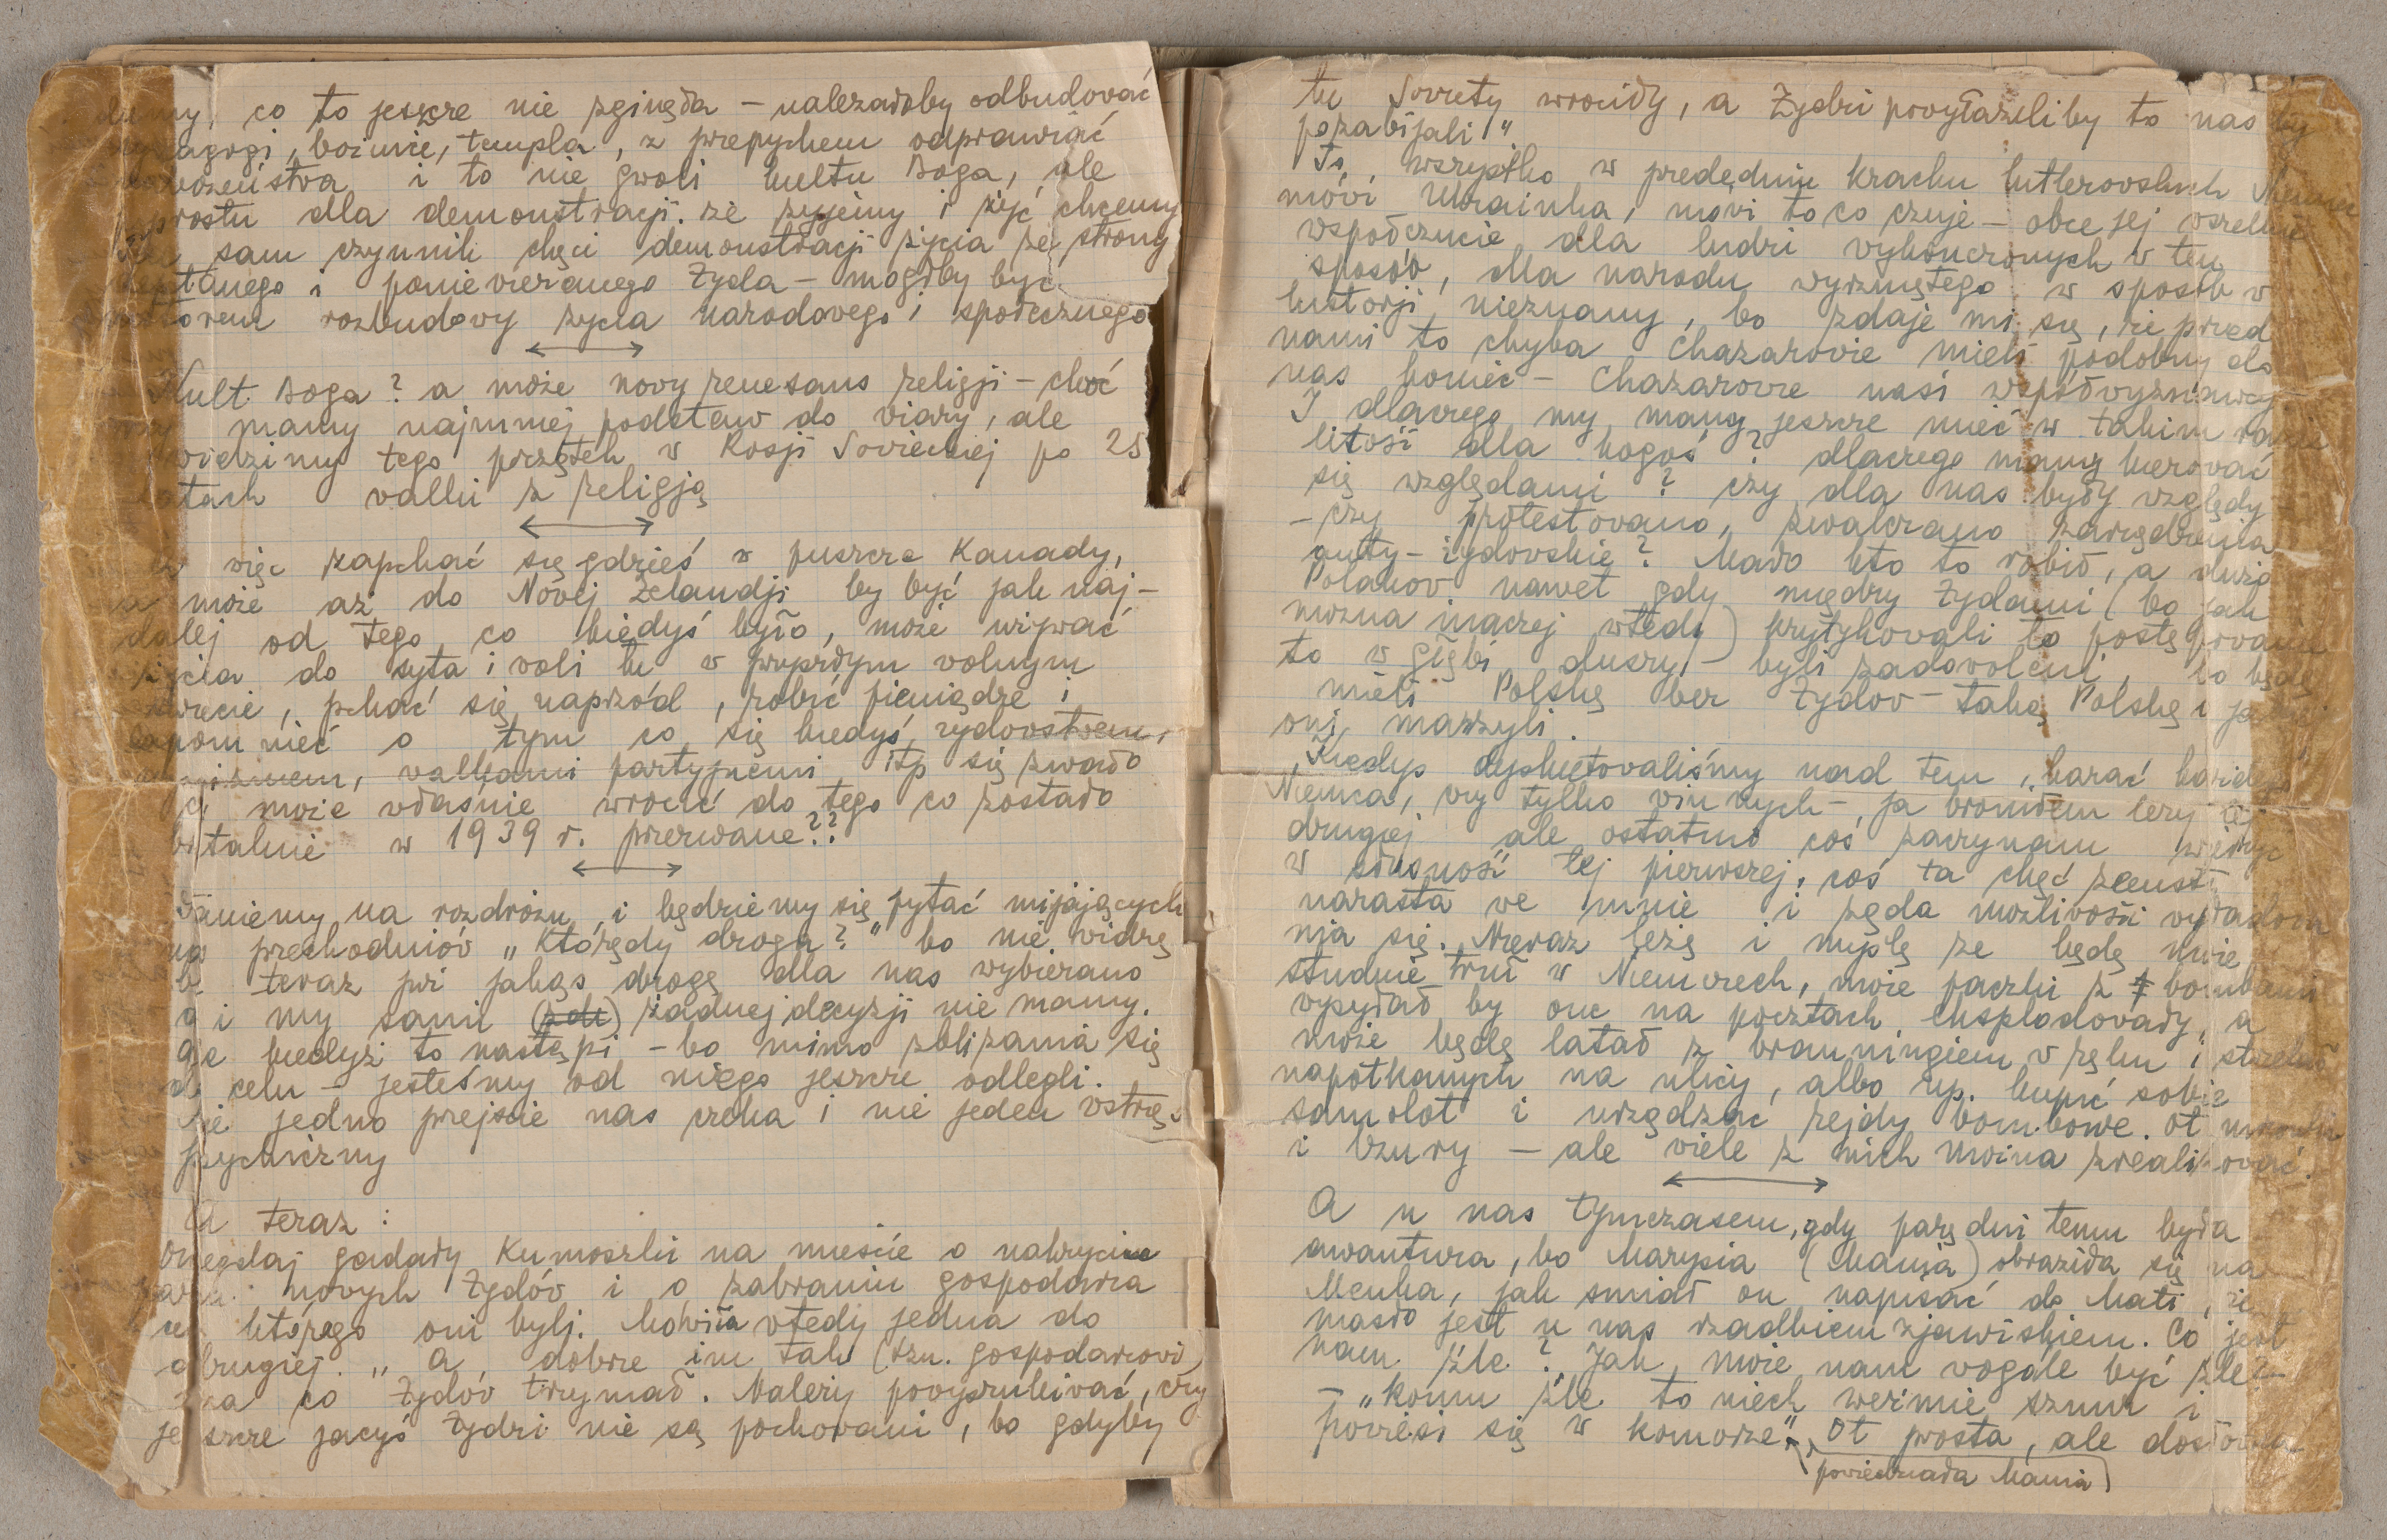 co to jeszcze nie zginęła – należałoby odbudować
synagogi, bożnice, templa, z przepychem odprawiać
i to nie gwoli kultu Boga, ale
poprostu dla demonstracji, że żyjemy i żyć chcemy
sam czynnik chęci demonstracji życia ze strony
i poniewieranego Żyda – mógłby być
rozbudowy życia narodowego i społecznego
Kult Boga? a może nowy renesans religji – choć
mamy najmniej podstaw do wiary, ale
widzimy tego początek w Rosji Sowieckiej po 25
latach walki z religją
więc zapchać się gdzieś w puszcze Kanady,
może aż do Nowej Zelandji by być jak naj-
dalej od tego co kiedyś było, może używać
życia do syta i woli tu w prawdziwym wolnym
świecie, pchać się naprzód, robić pieniądze i
zapomnieć o tym co się kiedyś żydowstwem,
walkami partyjnemi itp się zwało
może właśnie wrócić do tego co zostało
brutalnie w 1939 r. przerwane??
Staniemy na rozdrożu i będziemy się pytać mijających
nas przechodniów „którędy droga?" bo nie widzę
by teraz już jakąś drogę dla nas wybierano
a i my sami (zde) żadnej decyzji nie mamy.
kiedyż to nastąpi – bo mimo zbliżania się
do celu – jesteśmy od niego jeszcze odlegli.
Nie jedno przejście nas czeka i nie jeden wstrzą-
psychiczny
A teraz:
Onegdaj gadały Kumoszki na mieście o nakryciu
nowych Żydów i o zabraniu gospodarza
którego oni byli. Mówiła wtedy jedna do
drugiej. „A dobrze im tak (tzn. gospodarzowi)
za co Żydów trzymał. Należy powyszukiwać, czy
jeszcze jacyś Żydzi nie są pochowani, bo gdyby
tu Sowiety wróciły, a Żydzi powyłaziliby to nas by
pozabijali"
To wszystko w przededniu krachu hitlerowskich Niemiec
mówi Ukrainka, mówi to co czuje – obce jej wszelkie
współczucie dla ludzi wykończonych w ten
sposób, dla narodu wyrżniętego w sposób w
historji nieznany, bo zdaje mi się, że przed
nami to chyba Chazarowie mieli podobny do
nas koniec – Chazarowie nasi współwyznawcy
I dlaczego my mamy jeszcze mieć w takim razie
litość dla kogoś? dlaczego mamy kierować
się względami? czy dla nas były względy
– czy protestowano, zwalczano zarządzenia
anty-żydowskie? Mało kto to robił, a dużo
Polaków nawet gdy między Żydami (bo jak
można inaczej wtedy) krytykowali to postępowanie
to w głębi duszy – byli zadowoleni, bo będą
mieli Polskę bez Żydów – taką Polskę o jakiej
oni marzyli.
Kiedyś dyskutowaliśmy nad tem, karać każdego
Niemca, czy tylko winnych – ja broniłem tezy tej
drugiej ale ostatnio coś zaczynam wierzyć
w słuszność tej pierwszej, coś ta chęć zemsty
narasta we mnie i żąda możliwości wyładowa
nia się. Nieraz leżę i myślę że będę może
studnie truł w Niemczech, może paczki z bombami
wysyłał by one na pocztach eksplodowały, a
może będę latał z brauningiem w ręku i strzelał
napotkanych na ulicy, albo np. kupić sobie
samolot i urządzać rejdy bombowe. Ot
i bzury – ale wiele z nich można zrealizować.
A u nas tymczasem, gdy parę dni temu była
awantura, bo Marysia (Mania) obraziła się na
Menka, jak śmiał on napisać do Mati, że
masło jest u nas rzadkiem zjawiskiem. Co jest
nam źle? Jak może nam wogóle być źle? –
– „komu źle to niech weźmie sznur i
powiesi się w komorze". Ot prosta, ale dosłowna
(powiedziała Mania)